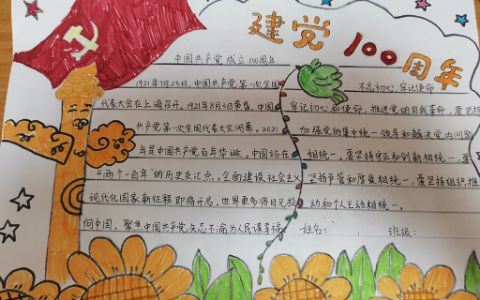 建党100周年
中国共产党成立100周年
1921年7月23日,中国共产党第一次全国
代表大会在上海召开。1921年8月3日重售,中国
共产党第一次全国代表大会闭幕。2021
年是中国共产党百年华诞。中国站在
"两个一百年"的历史交汇点,全面建设社会主义
现代化国家新征程即将开启。世界更多将目光投
向中国,聚焦中国共产党矢志不渝为人民谋幸福
不忘初心,牢记使命
牢记初心和使命,推进党的自我革命,要坚持
加强党集中统一领导和解决党内问题
相统一,要坚持守正和创新相统一,要
坚持严管和厚爱相统一,要坚持组织推
动和个人主动相统一。
姓名: 班级: